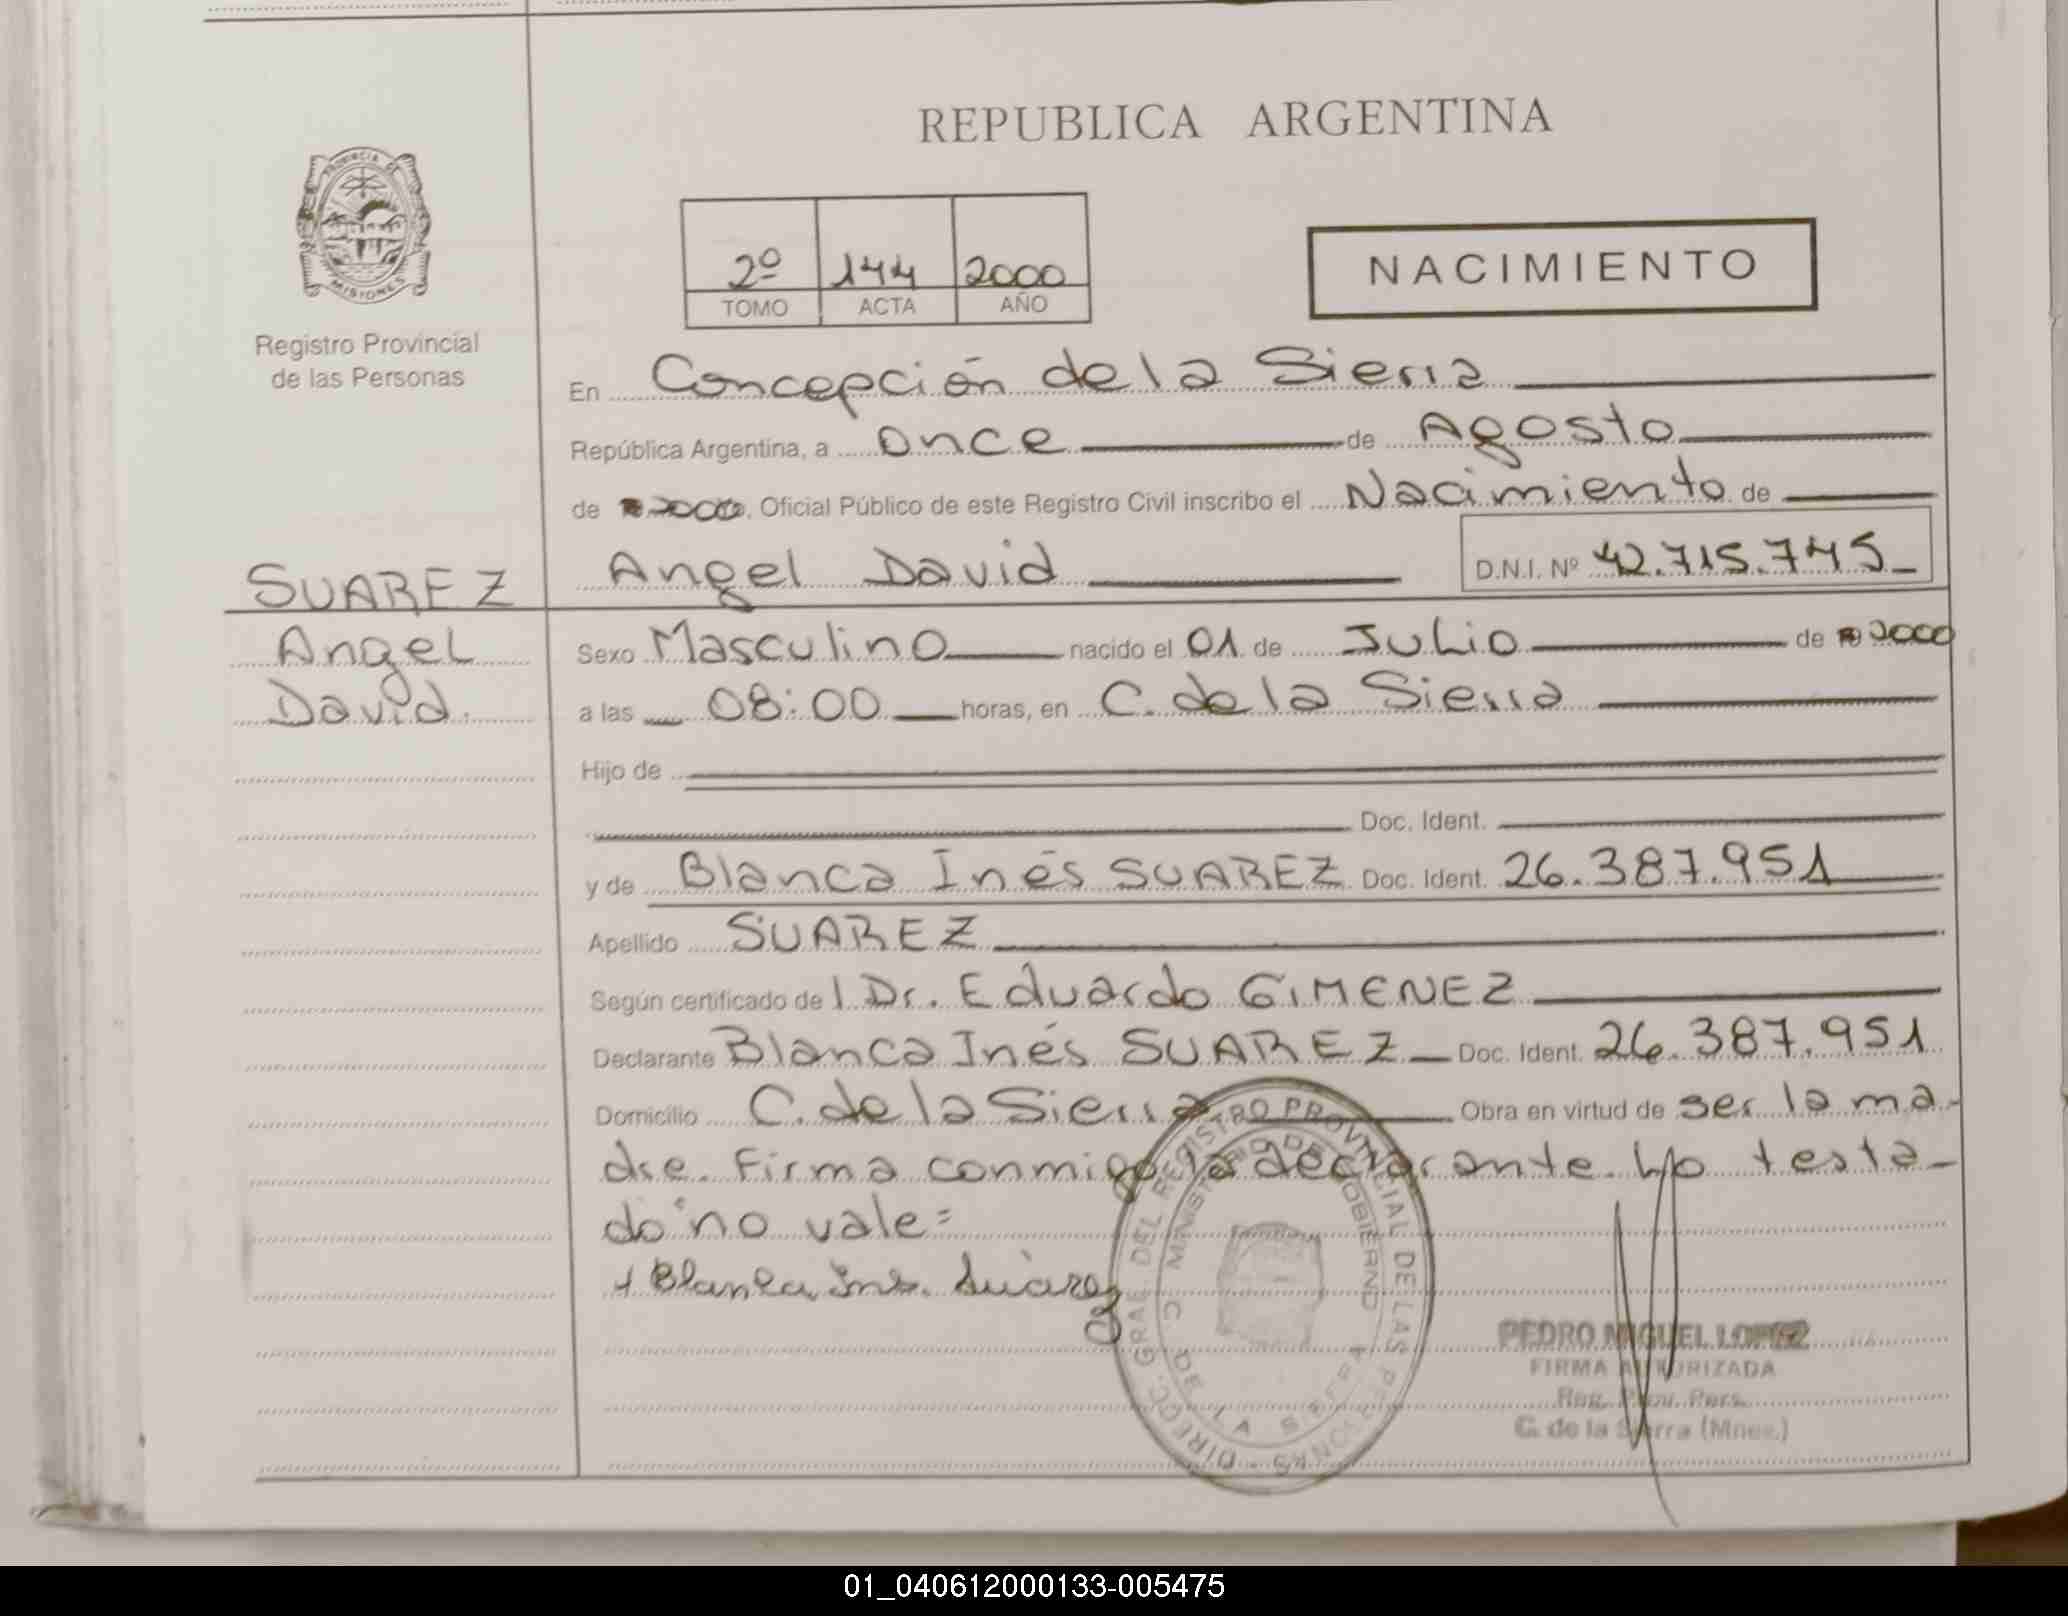 REPUBLICA ARGENTINA
PROVINCIA DE MISIONES
Registro Provincial
de las Personas
2º 144 2000
TOMO ACTA AÑO
NACIMIENTO
En Concepción de la Sierra
República Argentina, a once de Agosto
de 2000, Oficial Público de este Registro Civil inscribo el Nacimiento de
Angel David D.N.I. Nº 42.715.745
SUAREZ
Angel
David.
Sexo Masculino nacido el 01 de Julio de 2000
a las 08:00 horas, en C. de la Sierra
Hijo de
Doc. Ident.
y de Blanca Inés SUAREZ Doc. Ident. 26.387.951
Apellido SUAREZ
Según certificado del Dr. Eduardo GIMENEZ
Declarante Blanca Inés SUAREZ Doc. Ident. 26.387.951
Domicilio C. de la Sierra Obra en virtud de ser la ma-
dre. Firma conmigo la declarante. Lo testa-
do no vale=
+ Blanca Ines. Suárez
DIRECC. GRAL. DEL REGISTRO PROVINCIAL DE LAS PERSONAS
MINISTERIO DE GOBIERNO
C. DE LA SIERRA
PEDRO MIGUEL LOPEZ
FIRMA AUTORIZADA
Reg. Prov. Pers.
C. de la Sierra (Mnes.)
01_040612000133-005475